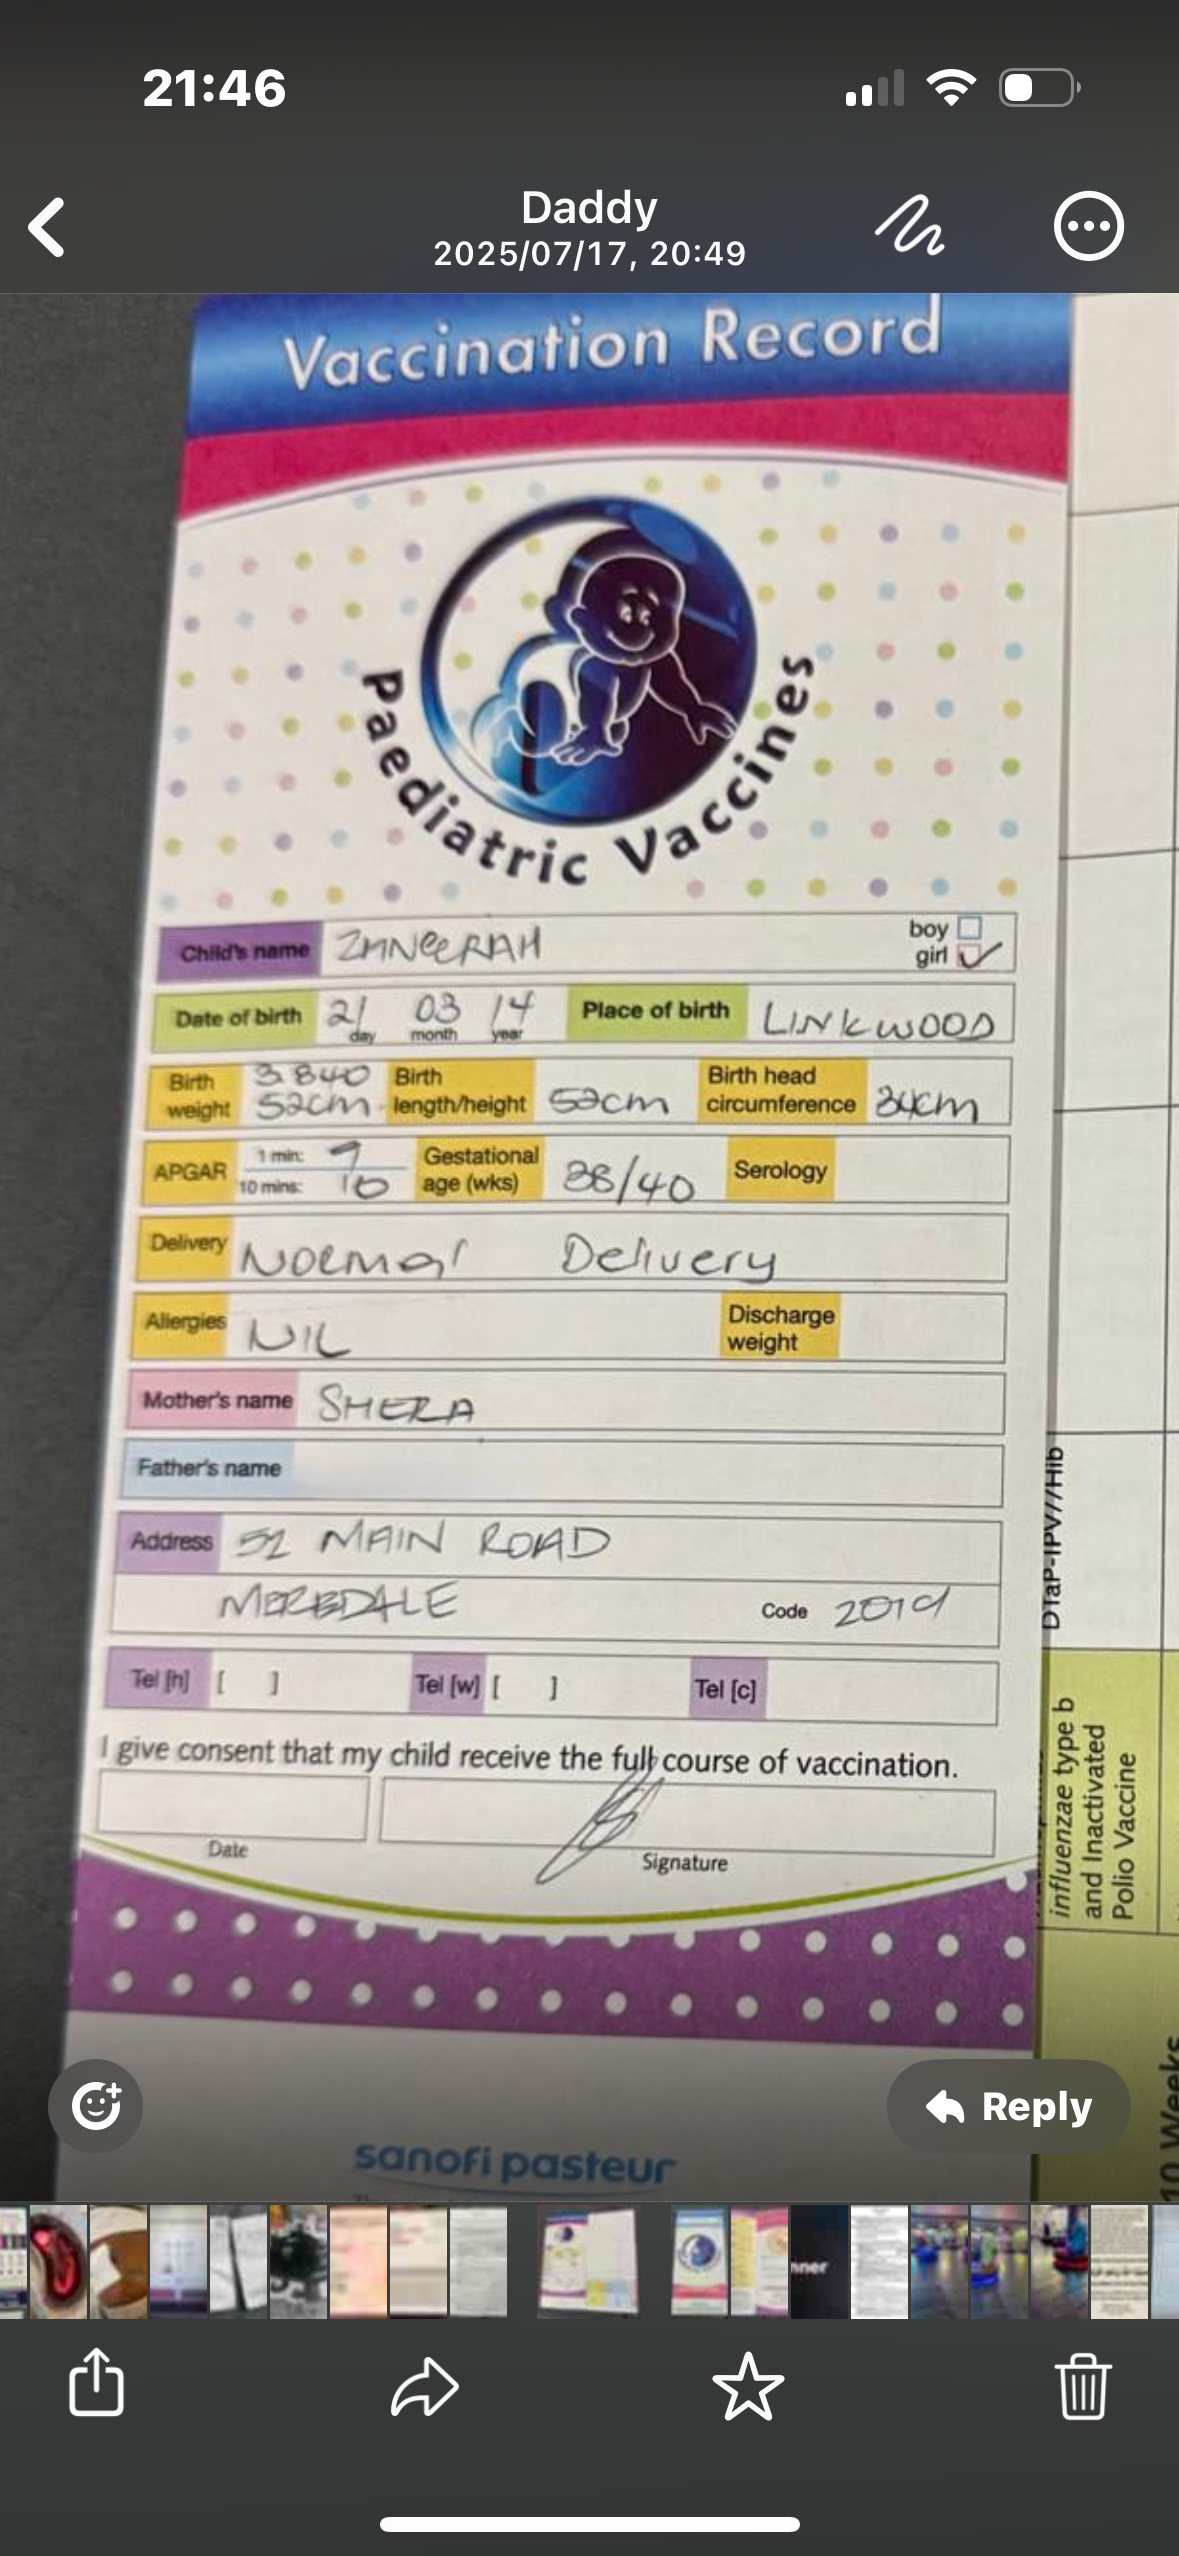 21:46
Daddy
2025/07/17, 20:49
Vaccination Record
Paediatric Vaccines
Child's name ZHNEERAH boy girl
Date of birth 21 day 03 month 14 year Place of birth LINKWOOD
Birth weight 3.840 52cm Birth length/height 52cm Birth head circumference 34cm
APGAR 1 min: 9 10 mins: 10 Gestational age (wks) 38/40 Serology
Delivery Normal Delivery
Allergies NIL Discharge weight
Mother's name SHERA
Father's name
Address 52 MAIN ROAD
MEREDALE Code 2019
Tel [h] [ ] Tel [w] [ ] Tel [c]
I give consent that my child receive the full course of vaccination.
Date Signature
sanofi pasteur
DTaP-IPV//Hib
influenzae type b
and Inactivated
Polio Vaccine
10 Weeks
Reply